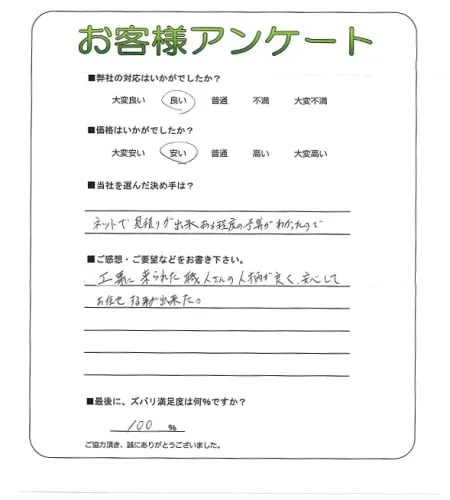 お客様アンケート
■弊社の対応はいかがでしたか？
大変良い 良い 普通 不満 大変不満
■価格はいかがでしたか？
大変安い 安い 普通 高い 大変高い
■当社を選んだ決め手は？
ネットで見積りが出来ある程度の予算がわかったので
■ご感想・ご要望などをお書き下さい。
工事に来られた職人さんの人柄が良く、安心して
お任せする事が出来た。
■最後に、ズバリ満足度は何％ですか？
100 %
ご協力頂き、誠にありがとうございました。